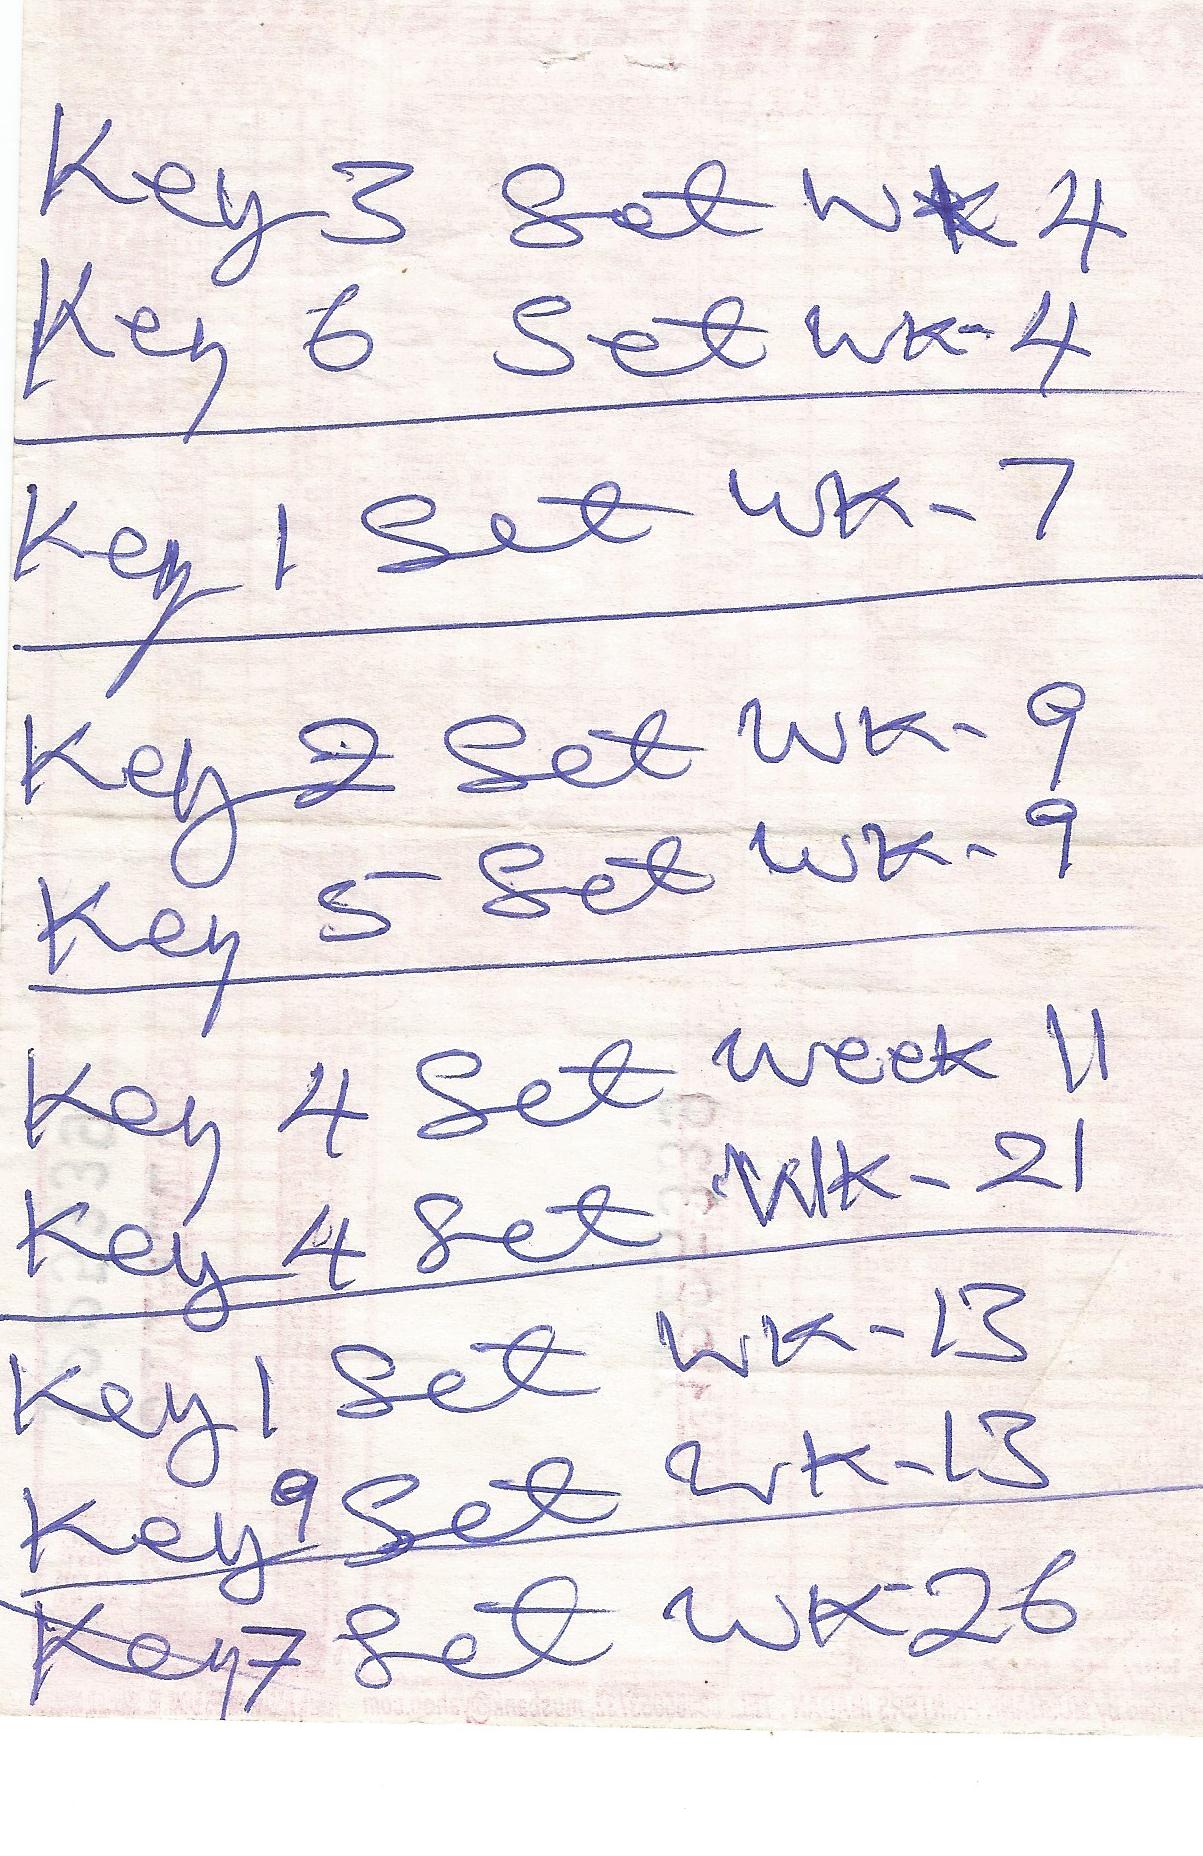 Key 3 Set wk 4
Key 6 Set wk-4
Key 1 Set wk-7
Key 2 Set wk-9
Key 5 Set wk-9
Key 4 Set week 11
Key 4 Set wk-21
Key 1 Set wk-13
Key 9 Set wk-13
Key 7 Set wk-26